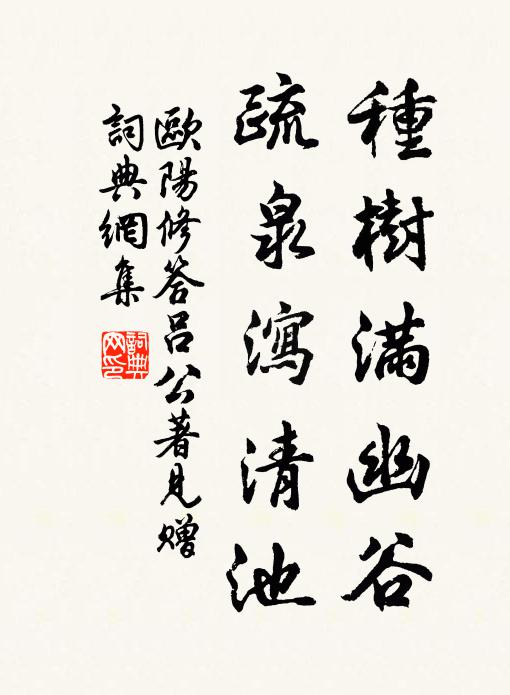 種樹滿幽谷
疏泉瀉清池
歐陽修答呂公著見贈
詞典網集
詞典
网印